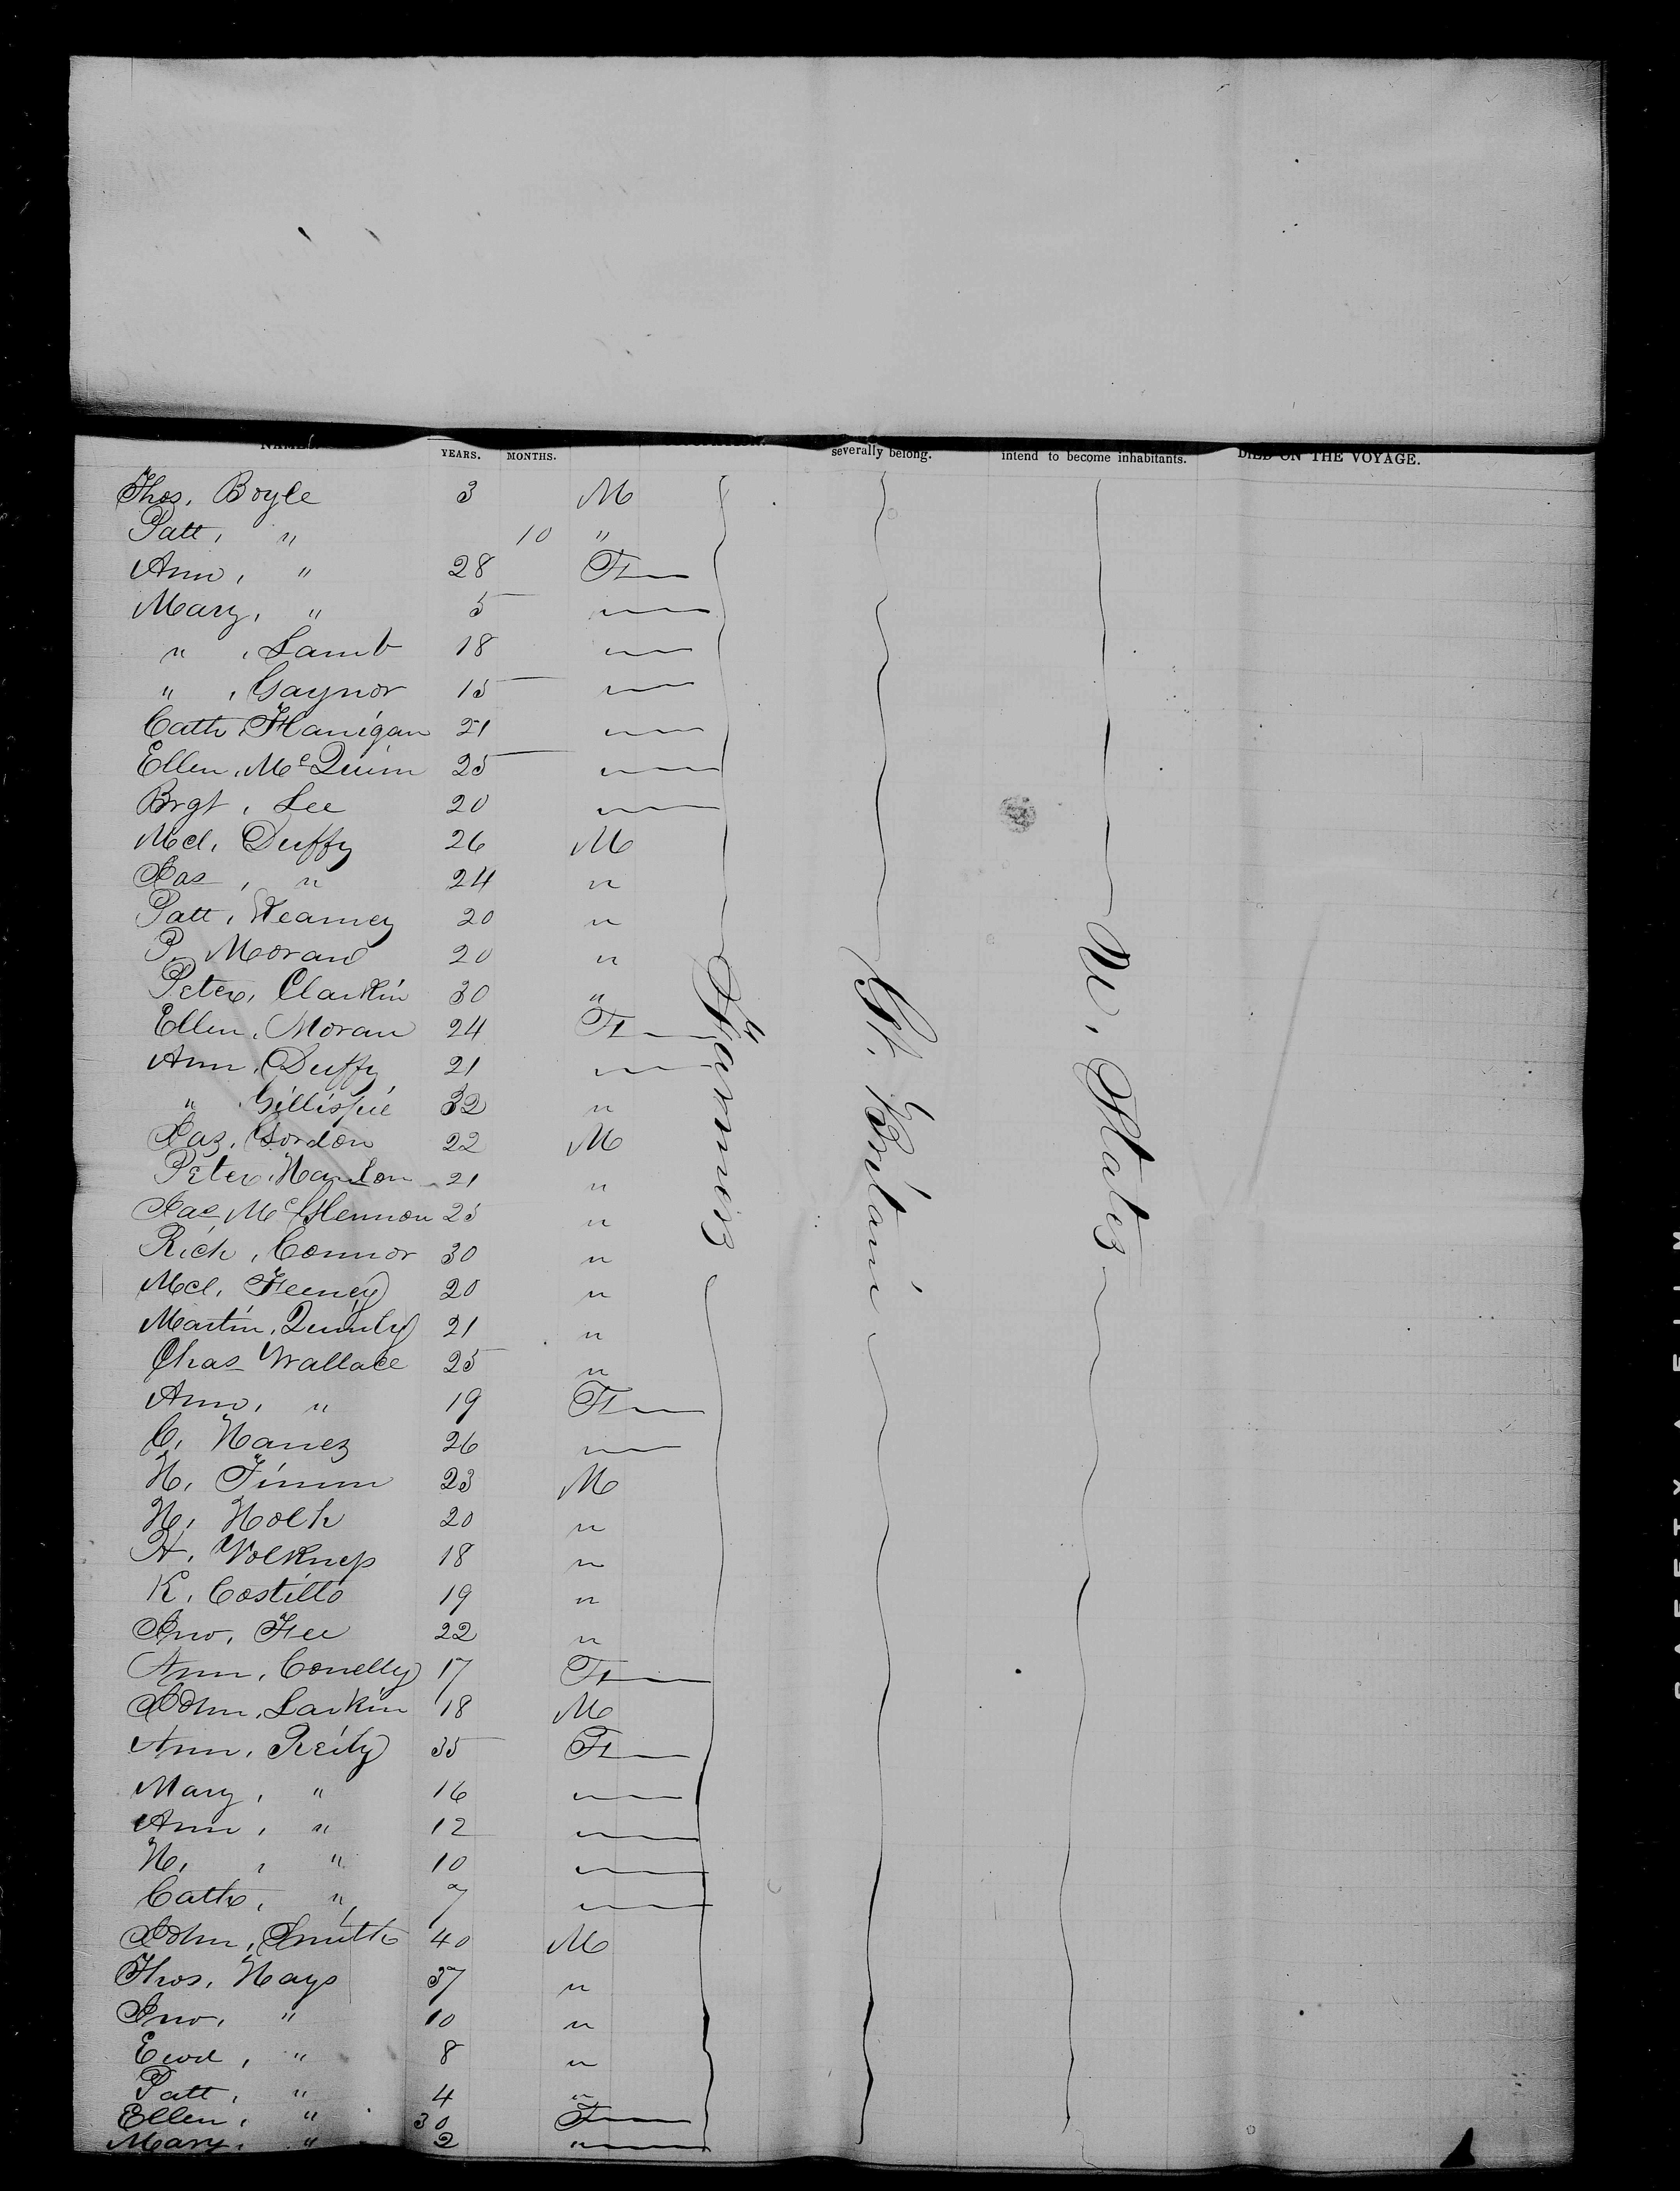 NAMES.
YEARS. MONTHS. severally belong. intend to become inhabitants. DIED ON THE VOYAGE.
Thos, Boyle 3 M
Patt, " 10 "
Ann, " 28 F
Mary, " 5
" , Lamb 18
" , Gaynor 15
Cath, Flanigan 21
Ellen, McQuinn 25
Brgt, Lee 20
Mcl, Duffy 26 M
Jas , " 24 "
Patt, Kearney 20 "
P. Moran 20 "
Peter, Clarkin 30 "
Ellen, Moran 24 F
Ann, Duffy 21
" Gillispie 32 "
Jas, Gordon 22 M
Peter, Hanlon 21 "
Jas Mc 25 "
Rich, Connor 30 "
Mcl, Feeney 20 "
Martin, 21 "
Chas Wallace 25 "
Ann, " 19 F
C, 26
H, Timm 23 M
H, 20 "
18 "
K, Costillo 19 "
Jno, Fee 22 "
Ann, Conelly 17 F
John, Larkin 18 M
Ann, Reily 35 F
Mary, " 16
Ann, " 12
H, , " 10
Cath, " 7
John, Smith 40 M
Thos, Hays 37 "
Jno, " 10 "
Ewd, " 8 "
Patt, " 4 "
Ellen, " 30 F
Mary, " 2 "
Farmers
Gt. Britain
U. States